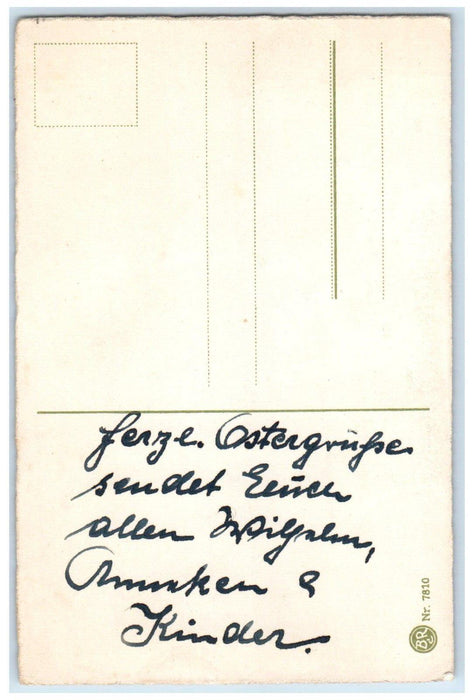 Herzl. Ostergrüße
sendet Euch
allen Wilhelm,
Anneken &
Kinder.
BR Nr. 7810